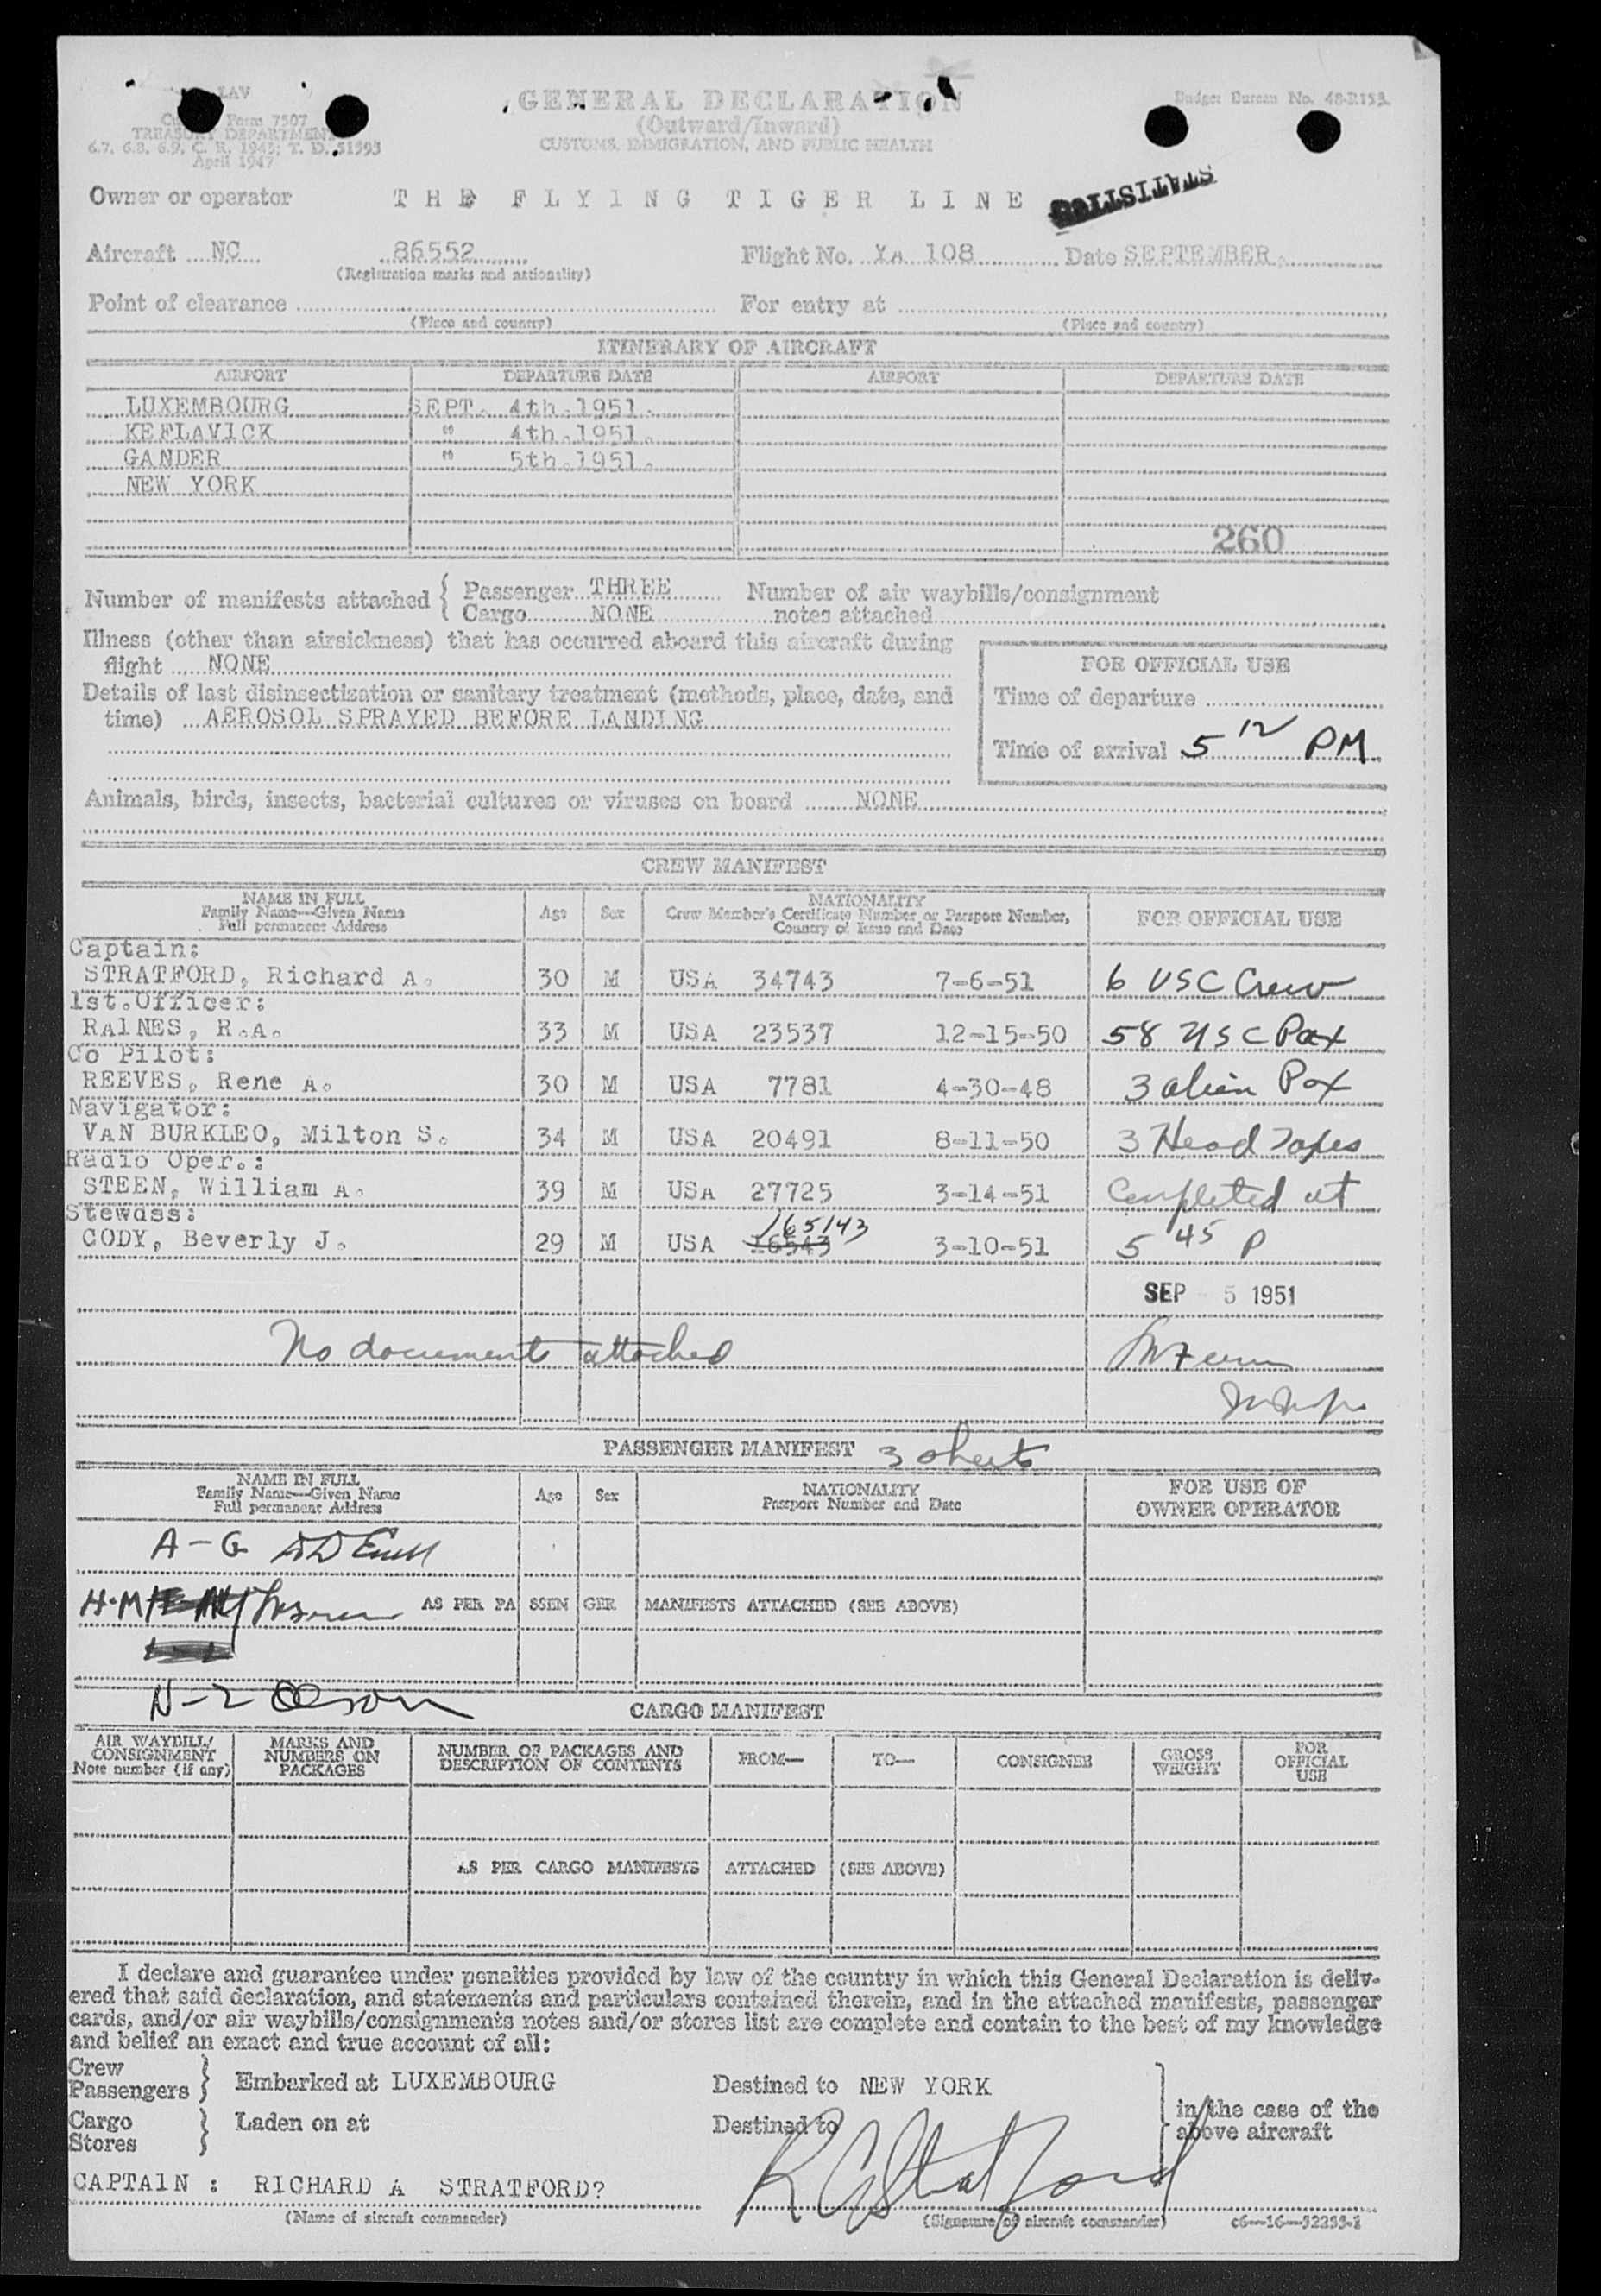 GENERAL DECLARATION
(Outward/Inward)
CUSTOMS, IMMIGRATION, AND PUBLIC HEALTH
LAV
Form 7507
TREASURY DEPARTMENT
6.7, 6.8, 6.9, C. R. 1943; T. D. 51593
April 1947
Budget Bureau No. 48-R153.
STATISTICS
Owner or operator THE FLYING TIGER LINE
Aircraft NC 86552 Flight No. XA 108 Date SEPTEMBER
(Registration marks and nationality)
Point of clearance For entry at
(Place and country) (Place and country)
ITINERARY OF AIRCRAFT
AIRPORT DEPARTURE DATE AIRPORT DEPARTURE DATE
LUXEMBOURG SEPT. 4th.1951.
KEFLAVICK " 4th.1951.
GANDER " 5th.1951.
NEW YORK
260
Number of manifests attached { Passenger THREE Number of air waybills/consignment
Cargo NONE notes attached
Illness (other than airsickness) that has occurred aboard this aircraft during
flight NONE
Details of last disinsectization or sanitary treatment (methods, place, date, and
time) AEROSOL SPRAYED BEFORE LANDING
FOR OFFICIAL USE
Time of departure
Time of arrival 5 12 PM
Animals, birds, insects, bacterial cultures or viruses on board NONE
CREW MANIFEST
NAME IN FULL
Family Name—Given Name
Full permanent Address
Age
Sex
NATIONALITY
Crew Member's Certificate Number or Passport Number,
Country of Issue and Date
FOR OFFICIAL USE
Captain:
STRATFORD, Richard A. 30 M USA 34743 7-6-51 6 USC Crew
1st.Officer:
RA1NES, R.A. 33 M USA 23537 12-15-50 58 USC Pax
Co Pilot:
REEVES, Rene A. 30 M USA 7781 4-30-48 3 alien Pax
Navigator:
VAN BURKLEO, Milton S. 34 M USA 20491 8-11-50 3 Head Taxes
Radio Oper.:
STEEN, William A. 39 M USA 27725 3-14-51 Completed at
Stewdss:
165143
CODY, Beverly J. 29 M USA 16543 3-10-51 5 45 P
SEP 5 1951
No document attached
PASSENGER MANIFEST 3 sheets
NAME IN FULL
Family Name—Given Name
Full permanent Address
Age
Sex
NATIONALITY
Passport Number and Date
FOR USE OF
OWNER OPERATOR
A-G
H-M AS PER PASSENGER MANIFESTS ATTACHED (SEE ABOVE)
N-Z Olson
CARGO MANIFEST
AIR WAYBILL/
CONSIGNMENT
Note number (if any)
MARKS AND
NUMBERS ON
PACKAGES
NUMBER OF PACKAGES AND
DESCRIPTION OF CONTENTS
FROM—
TO—
CONSIGNEE
GROSS
WEIGHT
FOR
OFFICIAL
USE
AS PER CARGO MANIFESTS ATTACHED (SEE ABOVE)
I declare and guarantee under penalties provided by law of the country in which this General Declaration is deliv-
ered that said declaration, and statements and particulars contained therein, and in the attached manifests, passenger
cards, and/or air waybills/consignments notes and/or stores list are complete and contain to the best of my knowledge
and belief an exact and true account of all:
Crew
Passengers } Embarked at LUXEMBOURG Destined to NEW YORK
Cargo
Stores } Laden on at Destined to
in the case of the
above aircraft
CAPTA1N : RICHARD A STRATFORD? R A Stratford
(Name of aircraft commander) (Signature of aircraft commander) c6—16—52255-1